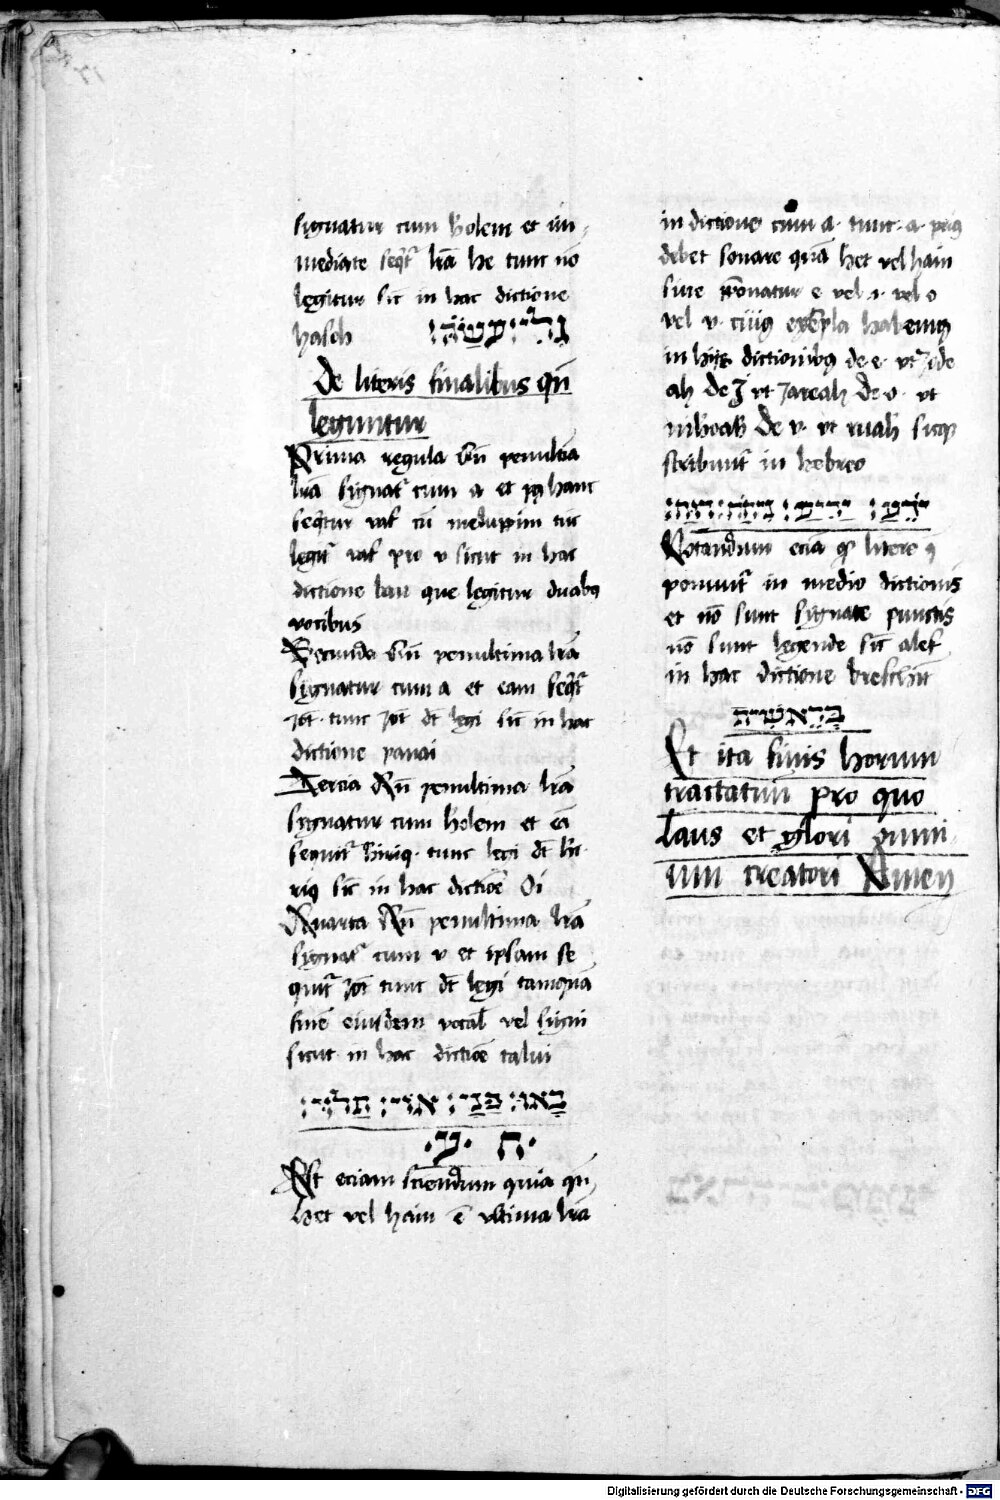 signatur cum holem et im
mediate seqt͛ lrã he tunc nõ
legitur sic̄ in hac dictione
hasch
De literis finalibus qn̄
leguntur
Prima regula Qn̄ penultia
lrã signat͛ cum a et hanc
seqtur raf cū
legit͛ raf pro v sicut in hac
dictione bau que legitur duabꝯ
vocibus
Secunda Qn̄ penultima lrã
signatur cum a et eam seqt͛
Jot tunc Jot dt̄ legi sic̄ in hac
dictione panai
Tercia Qn̄ penultima lrã
signatur cum holem et eā
sequit͛ hiriq tunc legi dt̄ hi
riq sic̄ in hac dictiõe Oi
Quarta Qn̄ penultima lrã
signat͛ cum v et ipsam se
quit͛ Jot tunc dt̄ legi tamquã
sine eiusdem vocal vel signi
sicut in hac dictiõe talui
בָאוּ׃ פַּנַיִ׃ אוֹיִ׃ תַלוּיִ׃
ח ע
Est eciam sciendum quia qn̄
het vel hain ē vltima lrã
in dictione cum a tunc a priꝯ
debet sonare quã het vel hain
siue ponatur e vel i vel o
vel v cuiꝯ exēpla habemꝯ
in hijs dictionibꝯ de e vt Jede
ah de J vt Jareah De o vt
nihoah De v vt ruah sicqꝫ
scribunt͛ in hebreo
Notandum eciã litere q̄
ponunt͛ in medio dictionis
et nõ sunt signate punctis
nõ sunt legende sic̄ alef
in hac dictione breschit
בְרֵאשִׁית
Et ita finis horum
tractatuū pro quo
Laus et glori omni
um creatori Amen
Digitalisierung gefördert durch die Deutsche Forschungsgemeinschaft - DFG